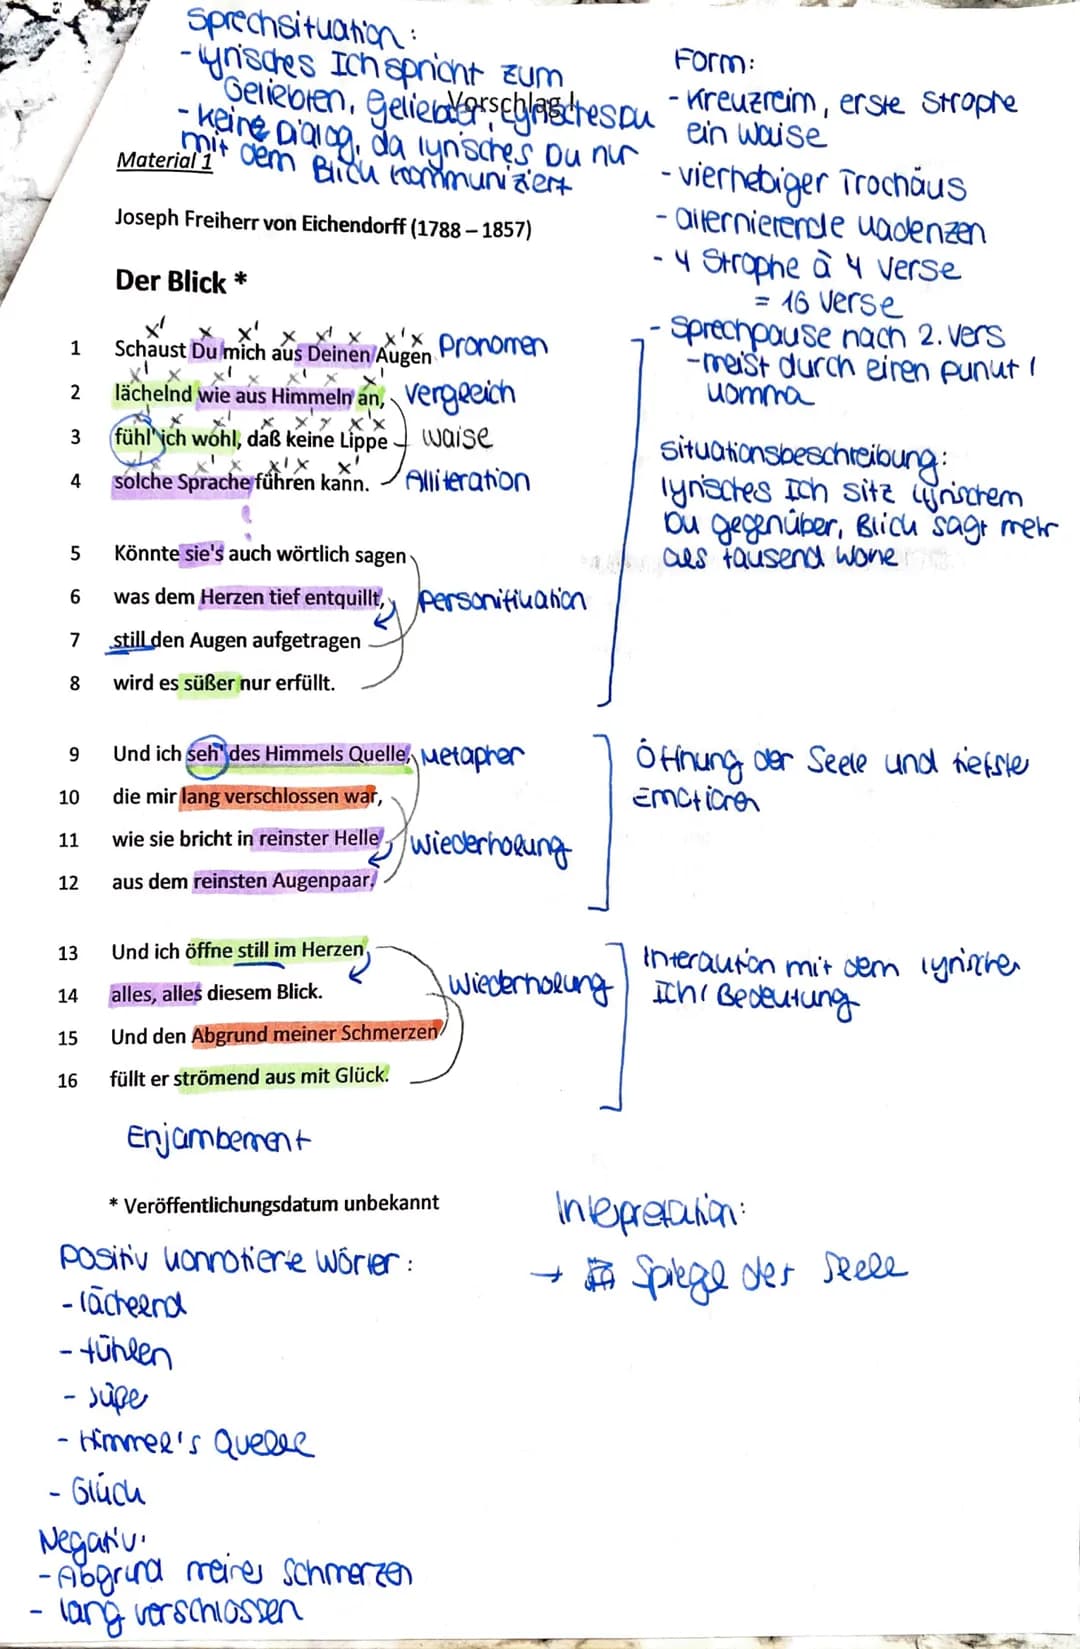 Sprechsituation:
- lyrisches Ich spricht zum
Geliebten, Geliebter, lyrisches Du
Vorschlag
- keine Dialog, da lyrisches Du nur
mit dem Blick kommuniziert
Material 1
Joseph Freiherr von Eichendorff (1788 – 1857)
Der Blick *
Form:
- Kreuzreim, erste Strophe
ein Waise
- vierhebiger Trochäus
- alternierende Kadenzen
- 4 Strophe à 4 Verse
= 16 Verse
- Sprechpause nach 2. Vers
- meist durch einen Punkt /
Komma
1 Schaust Du mich aus Deinen Augen Pronomen
2 lächelnd wie aus Himmeln an, Vergleich
3 fühl' ich wohl, daß keine Lippe Waise
4 solche Sprache führen kann. Alliteration
Situationsbeschreibung:
lyrisches Ich sitz lyrischem
Du gegenüber, Blick sagt mehr
als tausend Worte
5 Könnte sie's auch wörtlich sagen
6 was dem Herzen tief entquillt, Personifikation
7 still den Augen aufgetragen
8 wird es süßer nur erfüllt.
9 Und ich seh' des Himmels Quelle, Metapher
10 die mir lang verschlossen war,
11 wie sie bricht in reinster Helle Wiederholung
12 aus dem reinsten Augenpaar.
Öffnung der Seele und tiefste
Emotionen
13 Und ich öffne still im Herzen
14 alles, alles diesem Blick. Wiederholung
15 Und den Abgrund meiner Schmerzen
16 füllt er strömend aus mit Glück.
Interaktion mit dem lyrischen
Ich / Bedeutung
Enjambement
* Veröffentlichungsdatum unbekannt
Interpretation:
→ Spiegel der Seele
Positiv konnotierte Wörter:
- lächelnd
- fühlen
- süße
- Himmel's Quelle
- Glück
Negativ:
- Abgrund meines Schmerzen
- lang verschlossen